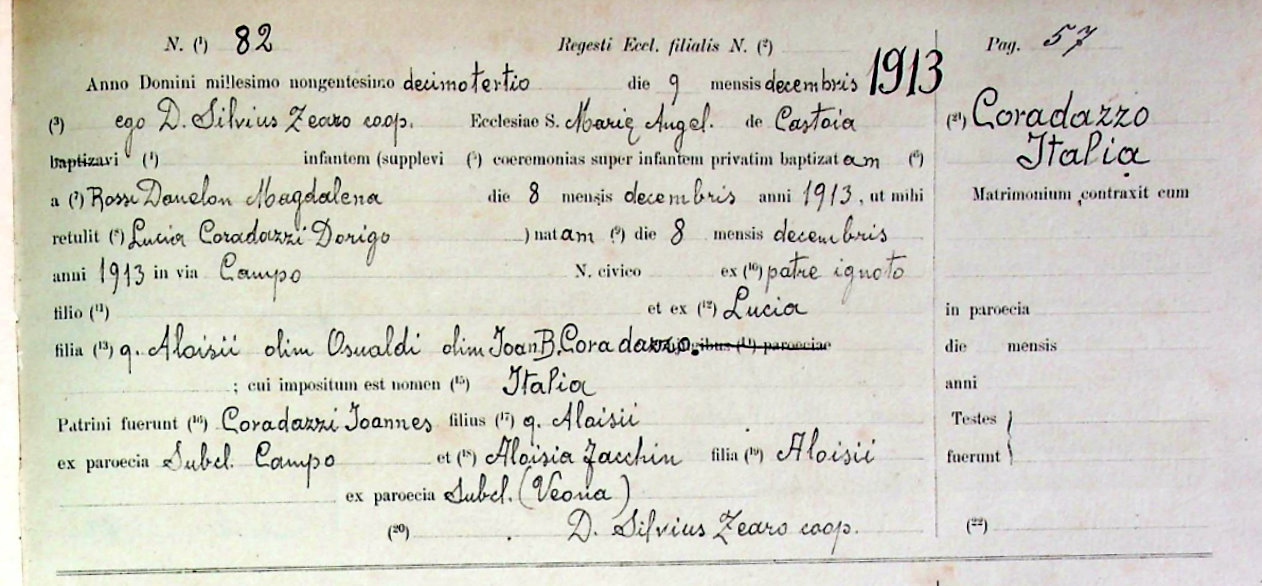 N. (1) 82 Regesti Eccl. filialis N. (2) Pag. 57
Anno Domini millesimo nongentesimo decimotertio die 9 mensis decembris 1913
(3) ego D. Silvius Zearo coop. Ecclesiae S. Marię Angel. de Castoia (21) Coradazzo
baptizavi (4) infantem (supplevi (5) coeremonias super infantem privatim baptizat am (6) Italia
a (7) Rossi Danelon Magdalena die 8 mensis decembris anni 1913, ut mihi Matrimonium contraxit cum
retulit (8) Lucia Coradazzi Dorigo ) nat am (9) die 8 mensis decembris
anni 1913 in via Campo N. civico ex (10) patre ignoto
filio (11) et ex (12) Lucia in paroecia
filia (13) q. Aloisii olim Osualdi olim Joan B. Coradazzo. (14) paroeciae die mensis
; cui impositum est nomen (15) Italia anni
Patrini fuerunt (16) Coradazzi Joannes filius (17) q. Aloisii Testes
ex paroecia Subcl. Campo et (18) Aloisia Zacchin filia (19) Aloisii fuerunt
ex paroecia Subcl. (Veona)
(20) D. Silvius Zearo coop. (22)